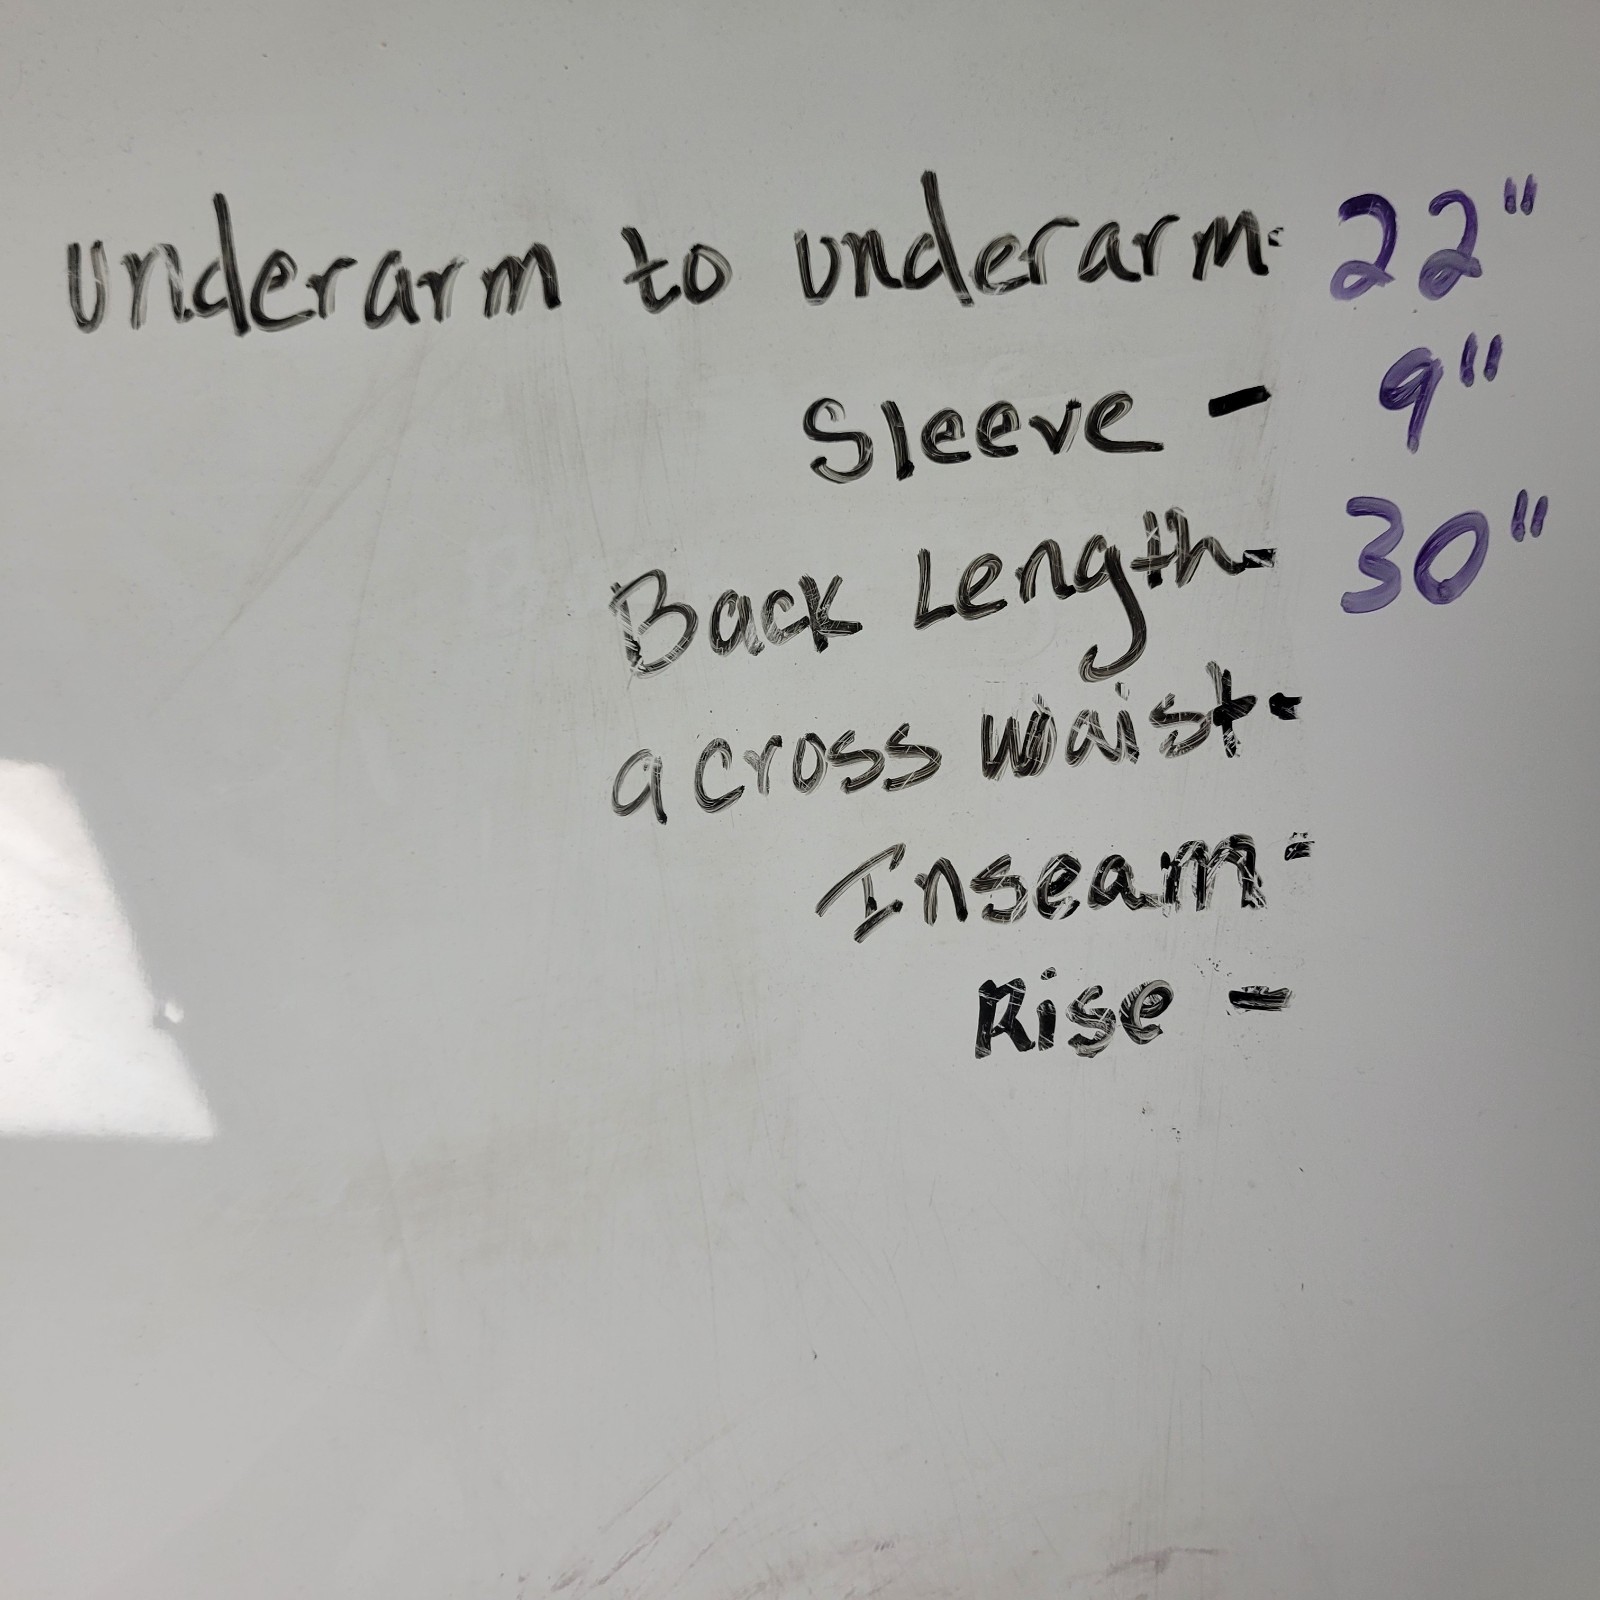 underarm to underarm- 22"
Sleeve - 9"
Back Length- 30"
across waist-
Inseam-
Rise -